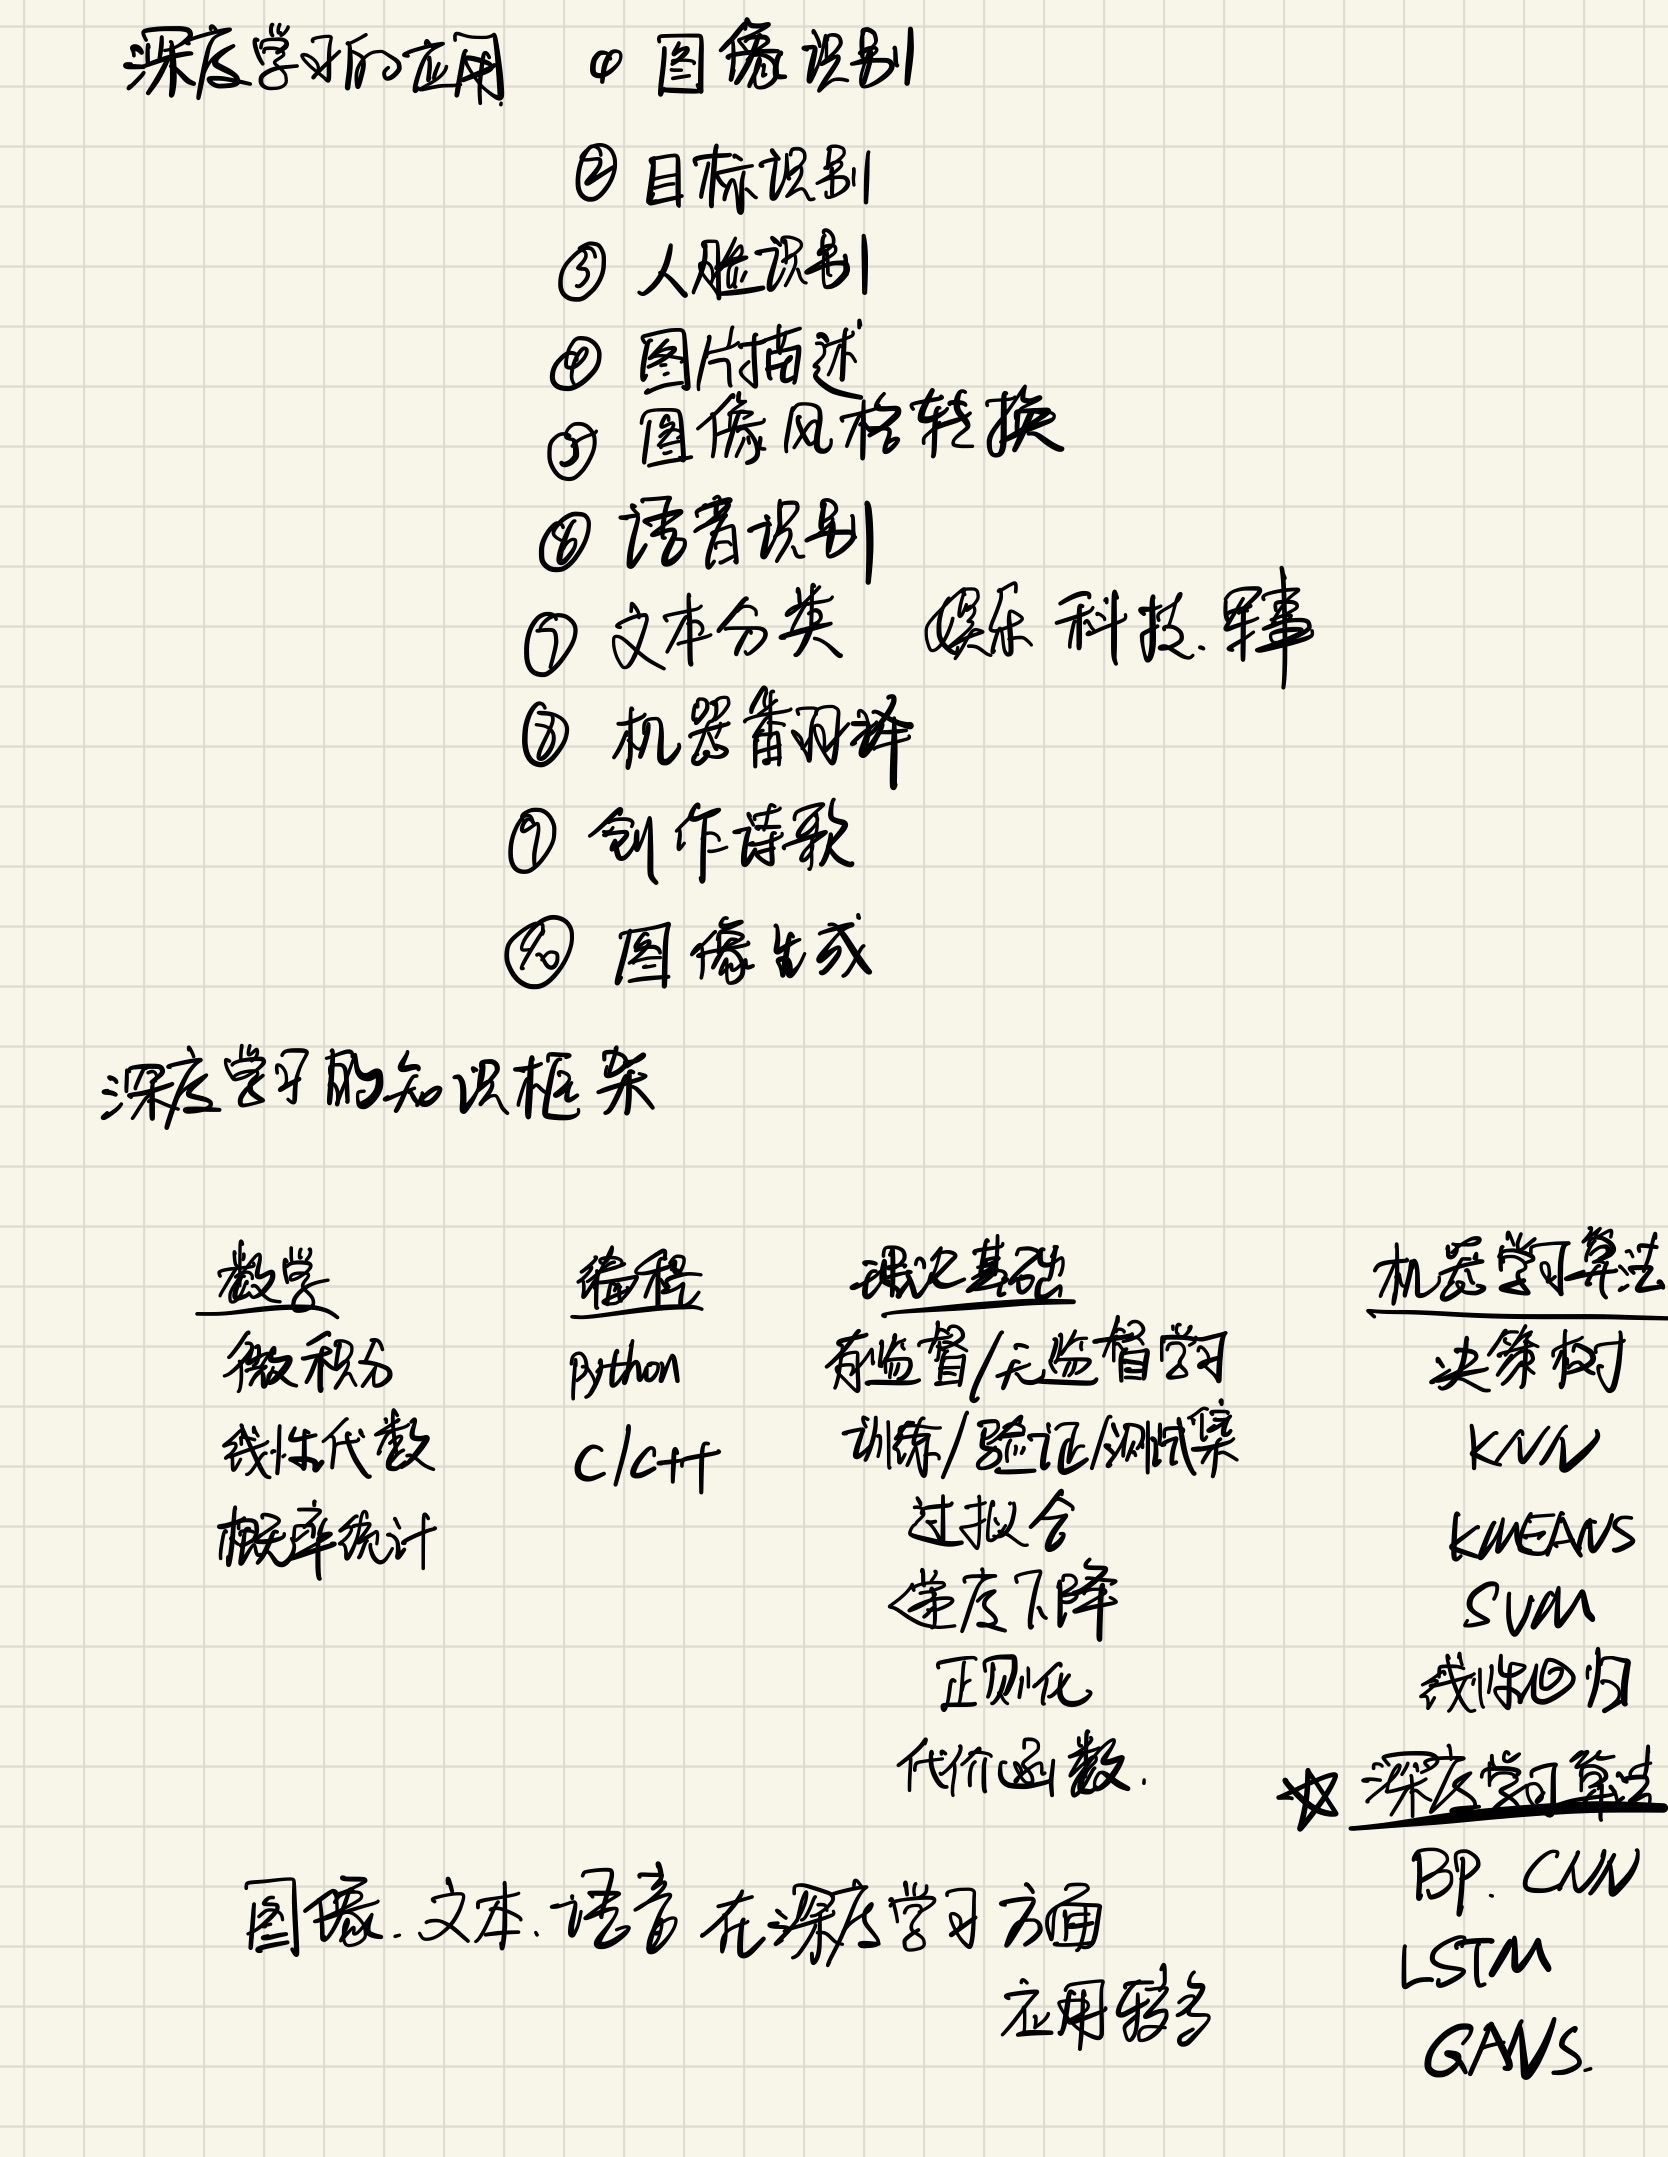 深度学习的应用 ① 图像识别
② 目标识别
③ 人脸识别
④ 图片描述
⑤ 图像风格转换
⑥ 语音识别
⑦ 文本分类 娱乐 科技.军事
⑧ 机器翻译
⑨ 创作诗歌
⑩ 图像生成
深度学习的知识框架
数学
微积分
线性代数
概率统计
编程
python
C/C++
理论基础
有监督/无监督学习
训练/验证/测试集
过拟合
梯度下降
正则化
代价函数.
机器学习算法
决策树
KNN
KMEANS
SVM
线性回归
☆ 深度学习算法
BP. CNN
LSTM
GANS.
图像.文本.语音在深度学习方面
应用较多